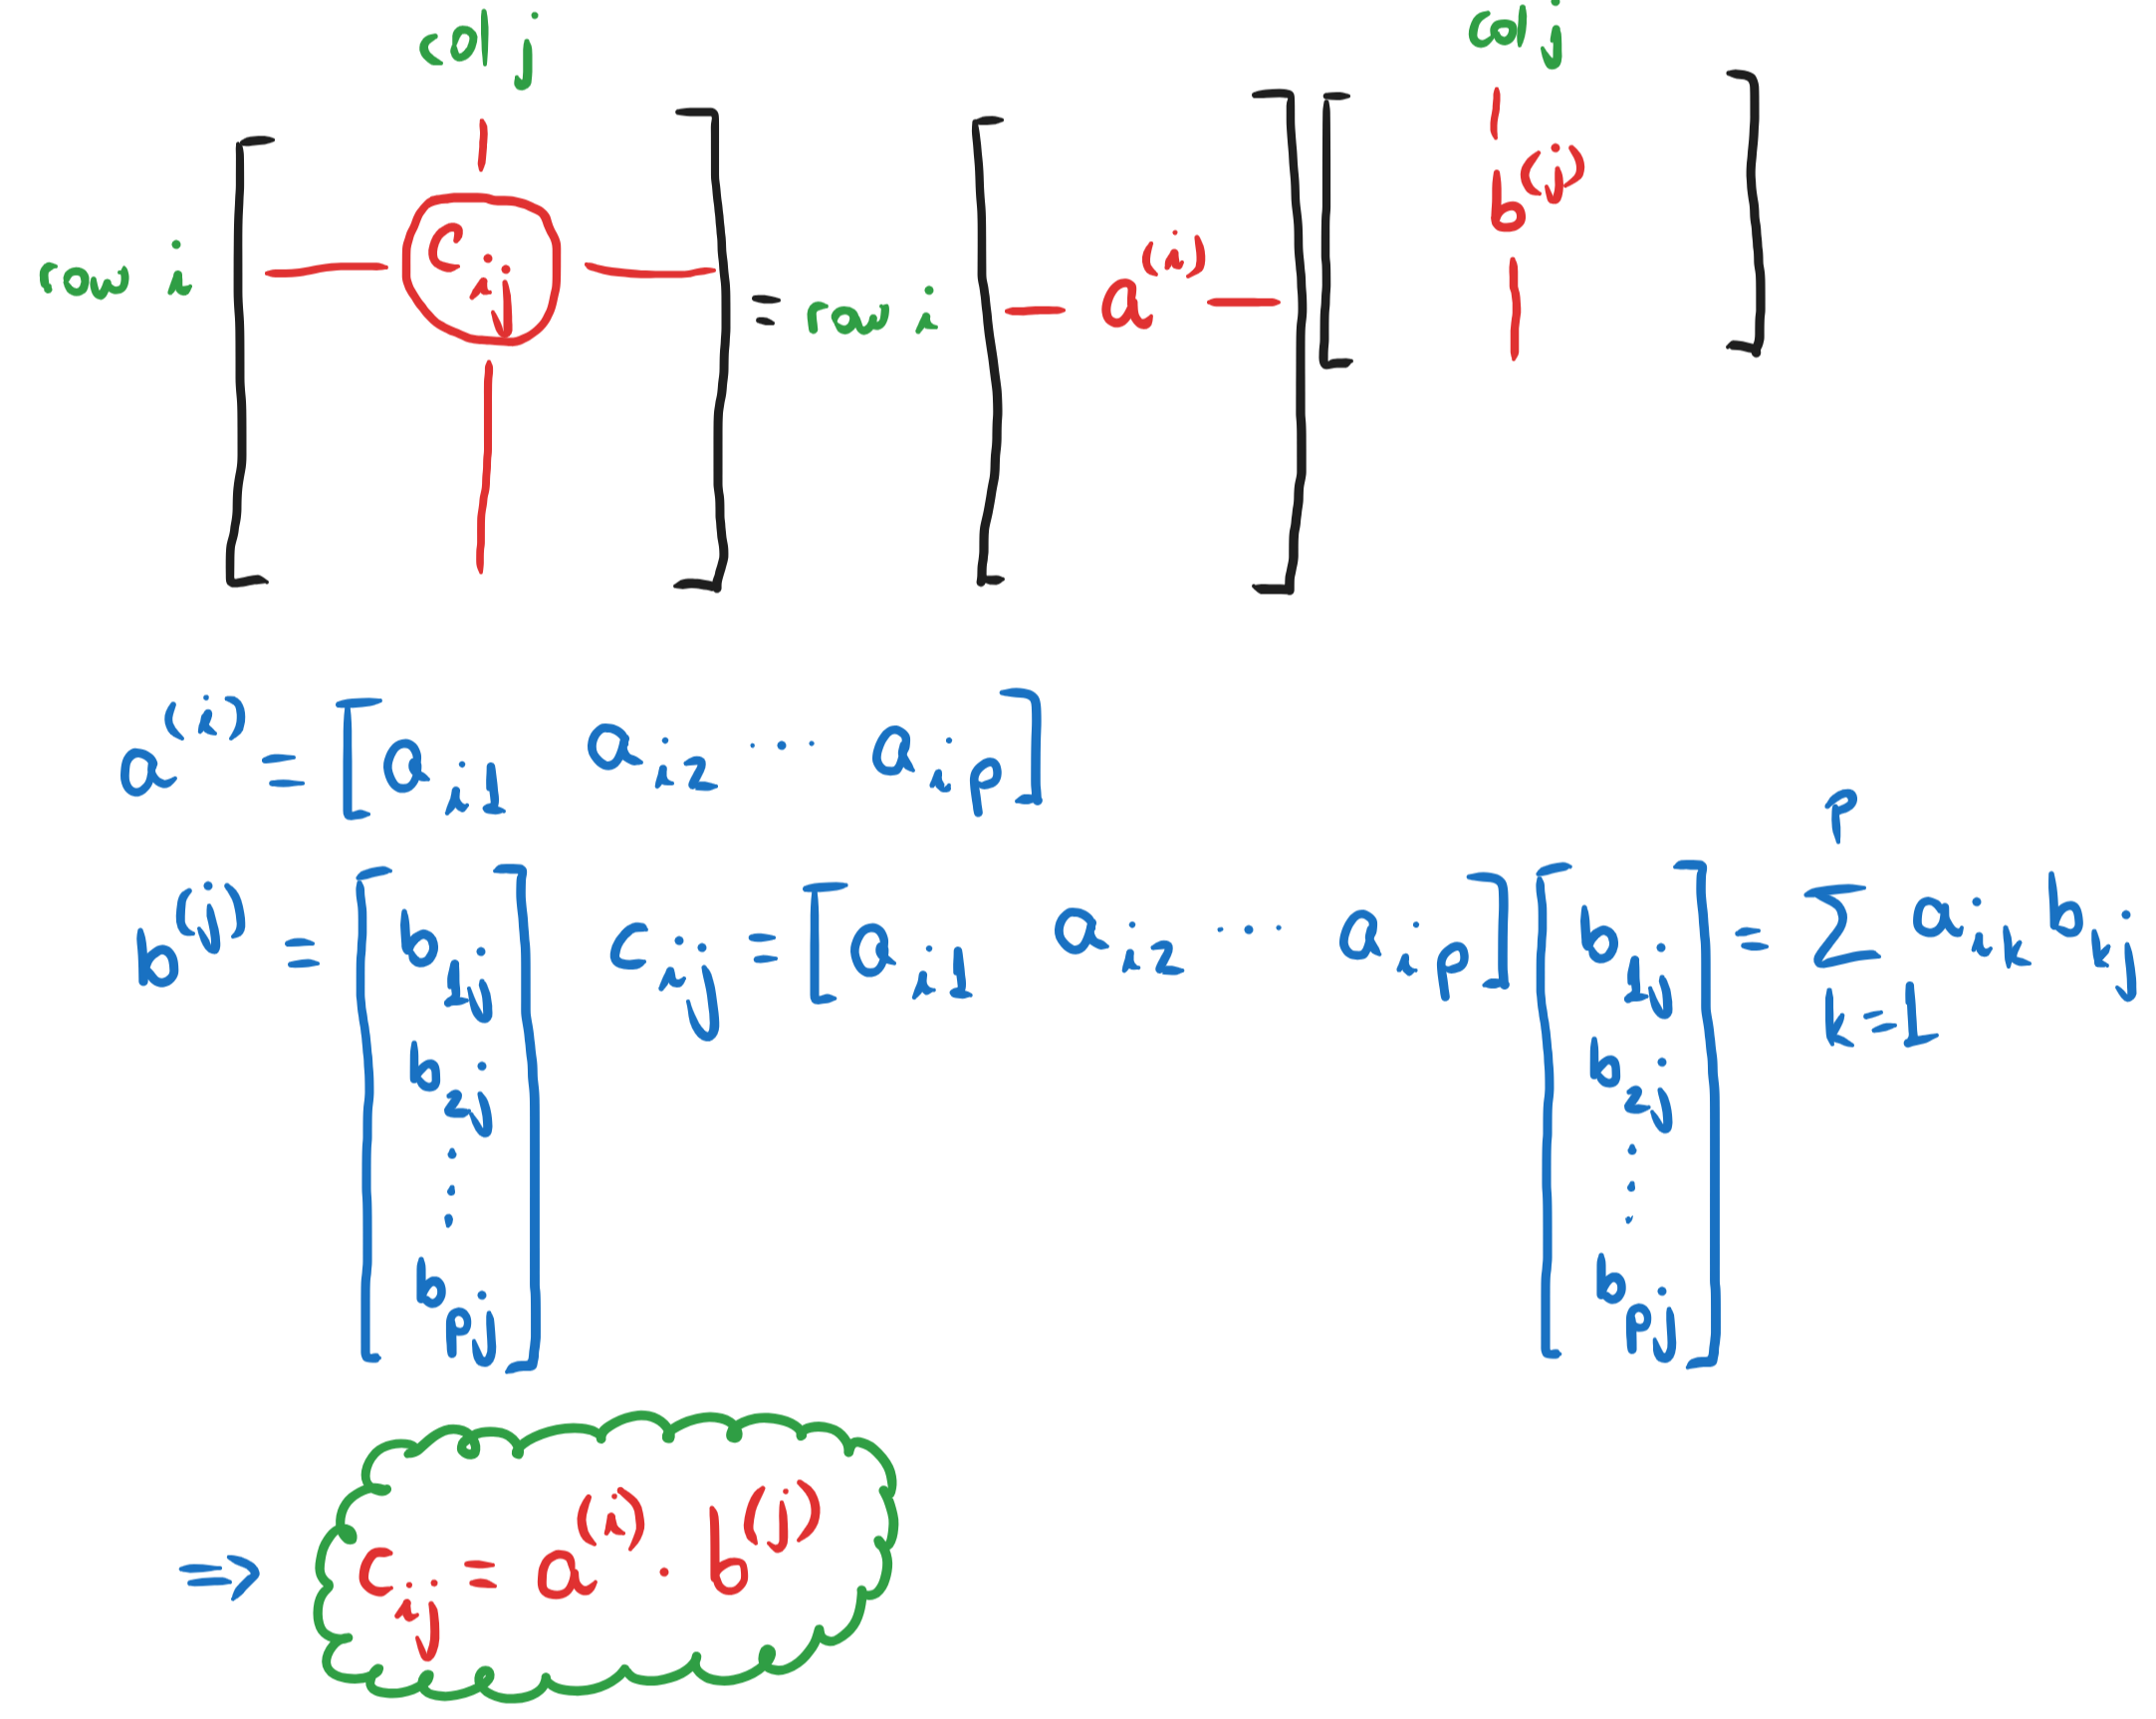 col j col j
row i [ — c_{ij} — ] = row i [ — a^{(i)} — ] [ b^{(j)} ]
a^{(i)} = [ a_{i1} a_{i2} ⋯ a_{ip} ]
b^{(j)} = [ b_{1j} b_{2j} ⋮ b_{pj} ] c_{ij} = [ a_{i1} a_{i2} ⋯ a_{ip} ] [ b_{1j} b_{2j} ⋮ b_{pj} ] = \sum_{k=1}^{p} a_{ik} b_{kj}
⇒ c_{ij} = a^{(i)} · b^{(j)}